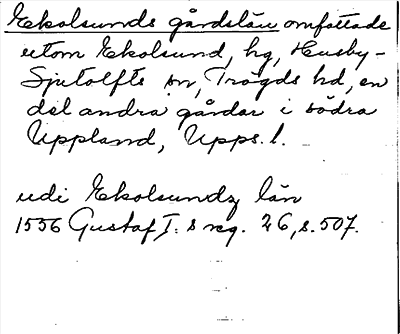 Ekolsunds gårdslän omfattade
utom Ekolsund, hg, Husby-
Sjutolfts sn, Trögds hd, en
del andra gårdar i södra
Uppland, Upps. l.
udi Ekolsundz län
1556 Gustaf I:s reg. 26, s. 507.